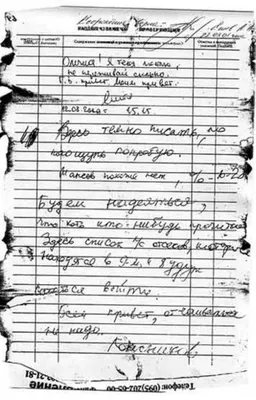 Олечка! Я тебя люблю,
не переживай сильно.
Г.В. привет. Моим привет.
12.08.2000 г 15.45
Здесь темно писать, но
наощупь попробую.
Шансов похоже нет, % 10-20
Будем надеяться,
что хоть кто-нибудь прочитает
Здесь список л/с отсеков, которые
находятся в 9-м и будут
пытаться выйти.
Всем привет, отчаиваться
не надо.
Колесников
Телефон: (095)202-65-00